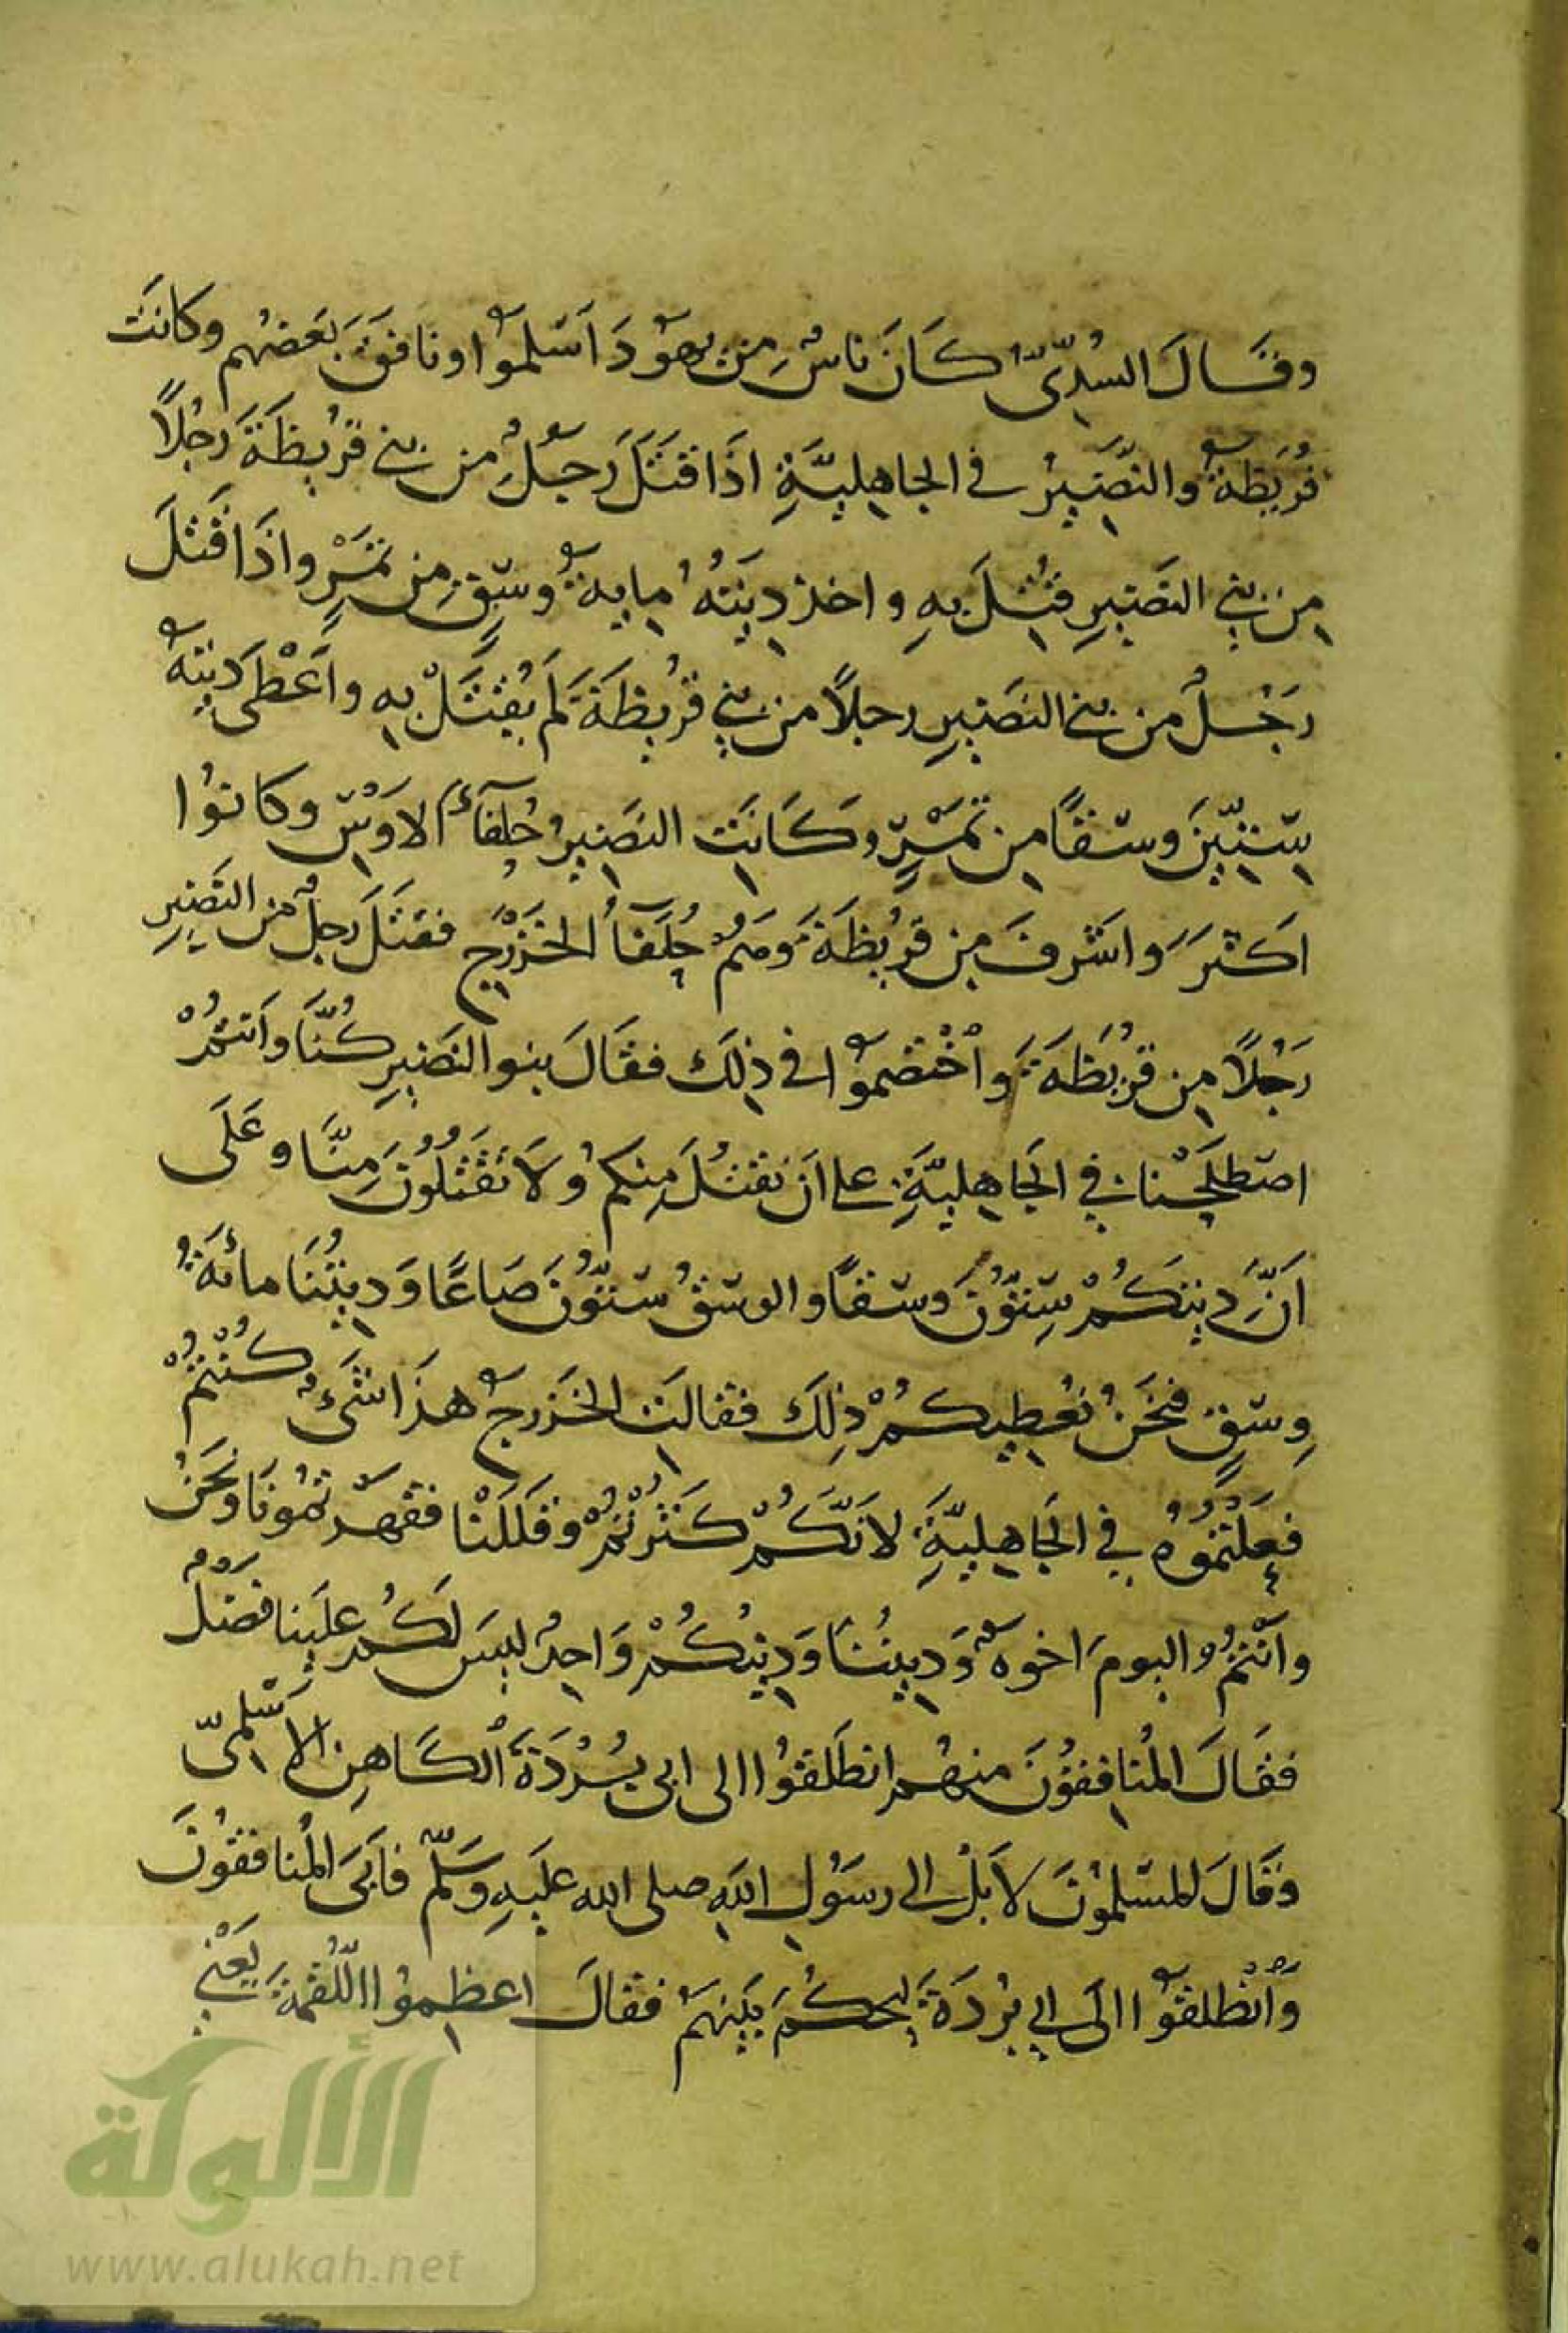 وقَالَ السُدِّيّ كَانَ ناسٌ مِن يهوُدَ اَسْلموُا ونافَقَ بَعَضهُم وكانَت
قُرَيَظةُ والنَّضِيرُ في الجاهِليَّةِ اذَا قتَلَ رَجُلٌ من بني قرُيظَةَ رَجُلًا
مِن بَنِي النَضيرِ قُتِلَ بهِ واخذ دِيَتَهُ مِايةُ وسْقٍ مِن تمَرٍْ واذَا قَتلَ
رَجُلٌ من بني النَضيرِ رجلًا من بني قرُيظَةَ لَم يُقتَلْ بهِ واَعْطىَ دِيتهُ
سِتِّينَ وسْقًا مِن تمَرٍْ وكَانَتِ النَضِيرُ حُلفآءُ الاَوَسِْ وكانوُا
اكَثرََ واشرفَ مِن قرُيظَةَ وهَمُ حُلَفآُ الخَزْرَجِ فقتَلَ رَجلٌ من النَضِيرِ
رَجُلًا مِن قرُيَظةََ واْخْتصَموُا في ذِلكَ فقَالَ بنو النَضيرِ كُنَّا واَنتمُْ
اصْطلَحْنا في الجَاهِليَّةِ على اَنْ نقتُلَ مِنكمُ ولاَ تَقْتُلوُنَ مِنَّا وعَلَى
اَنَّ دِيتَكُمْ سِتّوُنَ وسْقًا والوسْقُ سْتّوُنَ صَاعًا وَدِيتُنَا مائَةُ
وِسْقٍ فنَحَنُ نعُطِيكمُْ ذِلَكَ فقالتِ الخَزرجُ هذَا شَىءٌ كُنْتمُْ
فعَلْتمُوُهُ في الجَاهِليَّةِ لاَنَّكُمْ كَثرُْتمُْ وقلَلَنْا فقهَرّتموُنَا ونَحَنُ
وانَْتمُ اليومَ اخوةٌ وَدِينُنا وَدِينُكُمْ وَاحِدٌ ليسَ لَكُم علَينِا فضْلٌ
فقَالَ المُنافِقوُنَ منهُم انطَلَقوُا الى ابى بُرْدَةَ اْلكَاهِن الاَسْلمىّ
وقَالَ المسْلموُنَ لاَ بَلْ الى رسَوُلِ اللهِ صلى الله علَيهِ وسَلّم فابَىَ المُنافقوُنَ
واْنْطلقوُا الَى ابي برُدَةَ ليحَكُمَ بيَنهمُ فقالَ اعظِموُا اللُّقمَةَ يَعْنِي
الألوكة
www.alukah.net